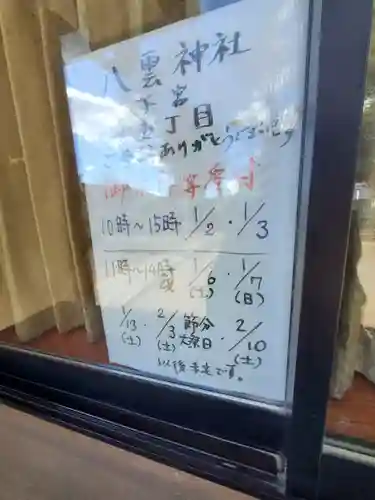 八雲神社
子宮
五丁目
ありがとうございます
御 受付
10時～15時 1/2・1/3
11時～14時 1/6(土)・1/7(日)
1/13(土)・2/3(土) 節分大祭日・2/10(土)
以後未定です。